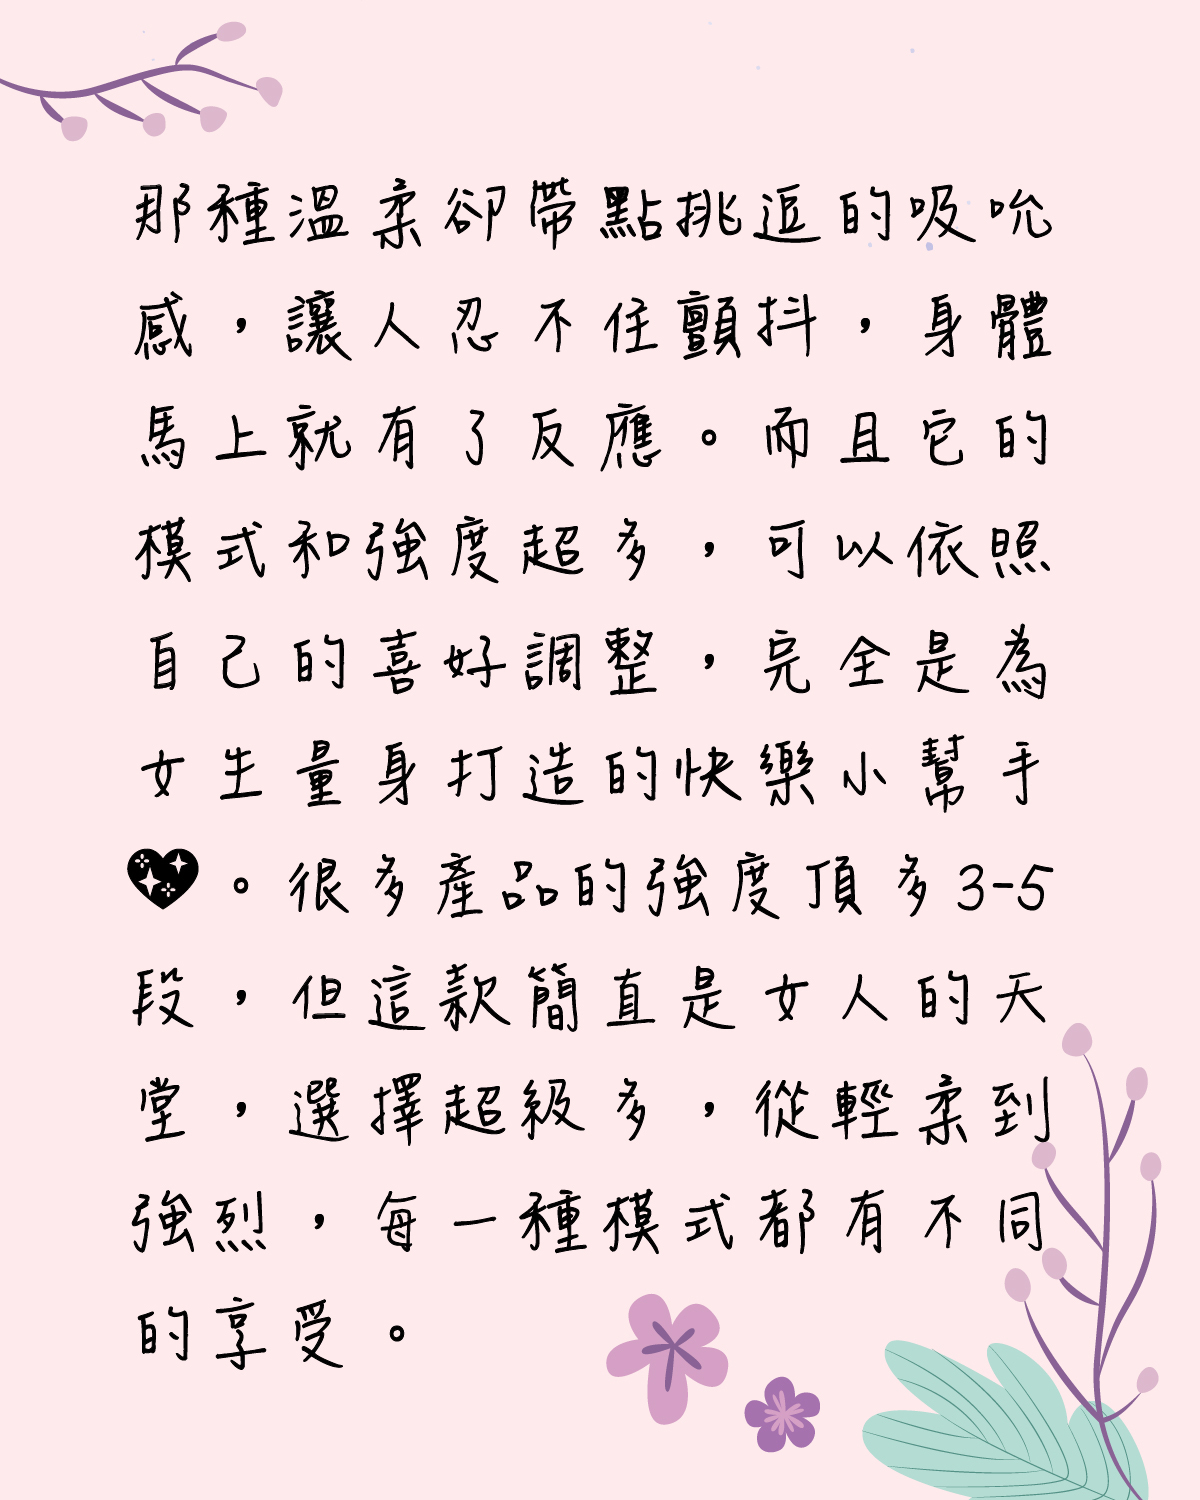 那種溫柔卻帶點挑逗的吸吮
感，讓人忍不住顫抖，身體
馬上就有了反應。而且它的
模式和強度超多，可以依照
自己的喜好調整，完全是為
女生量身打造的快樂小幫手
。很多產品的強度頂多3-5
段，但這款簡直是女人的天
堂，選擇超級多，從輕柔到
強烈，每一種模式都有不同
的享受。